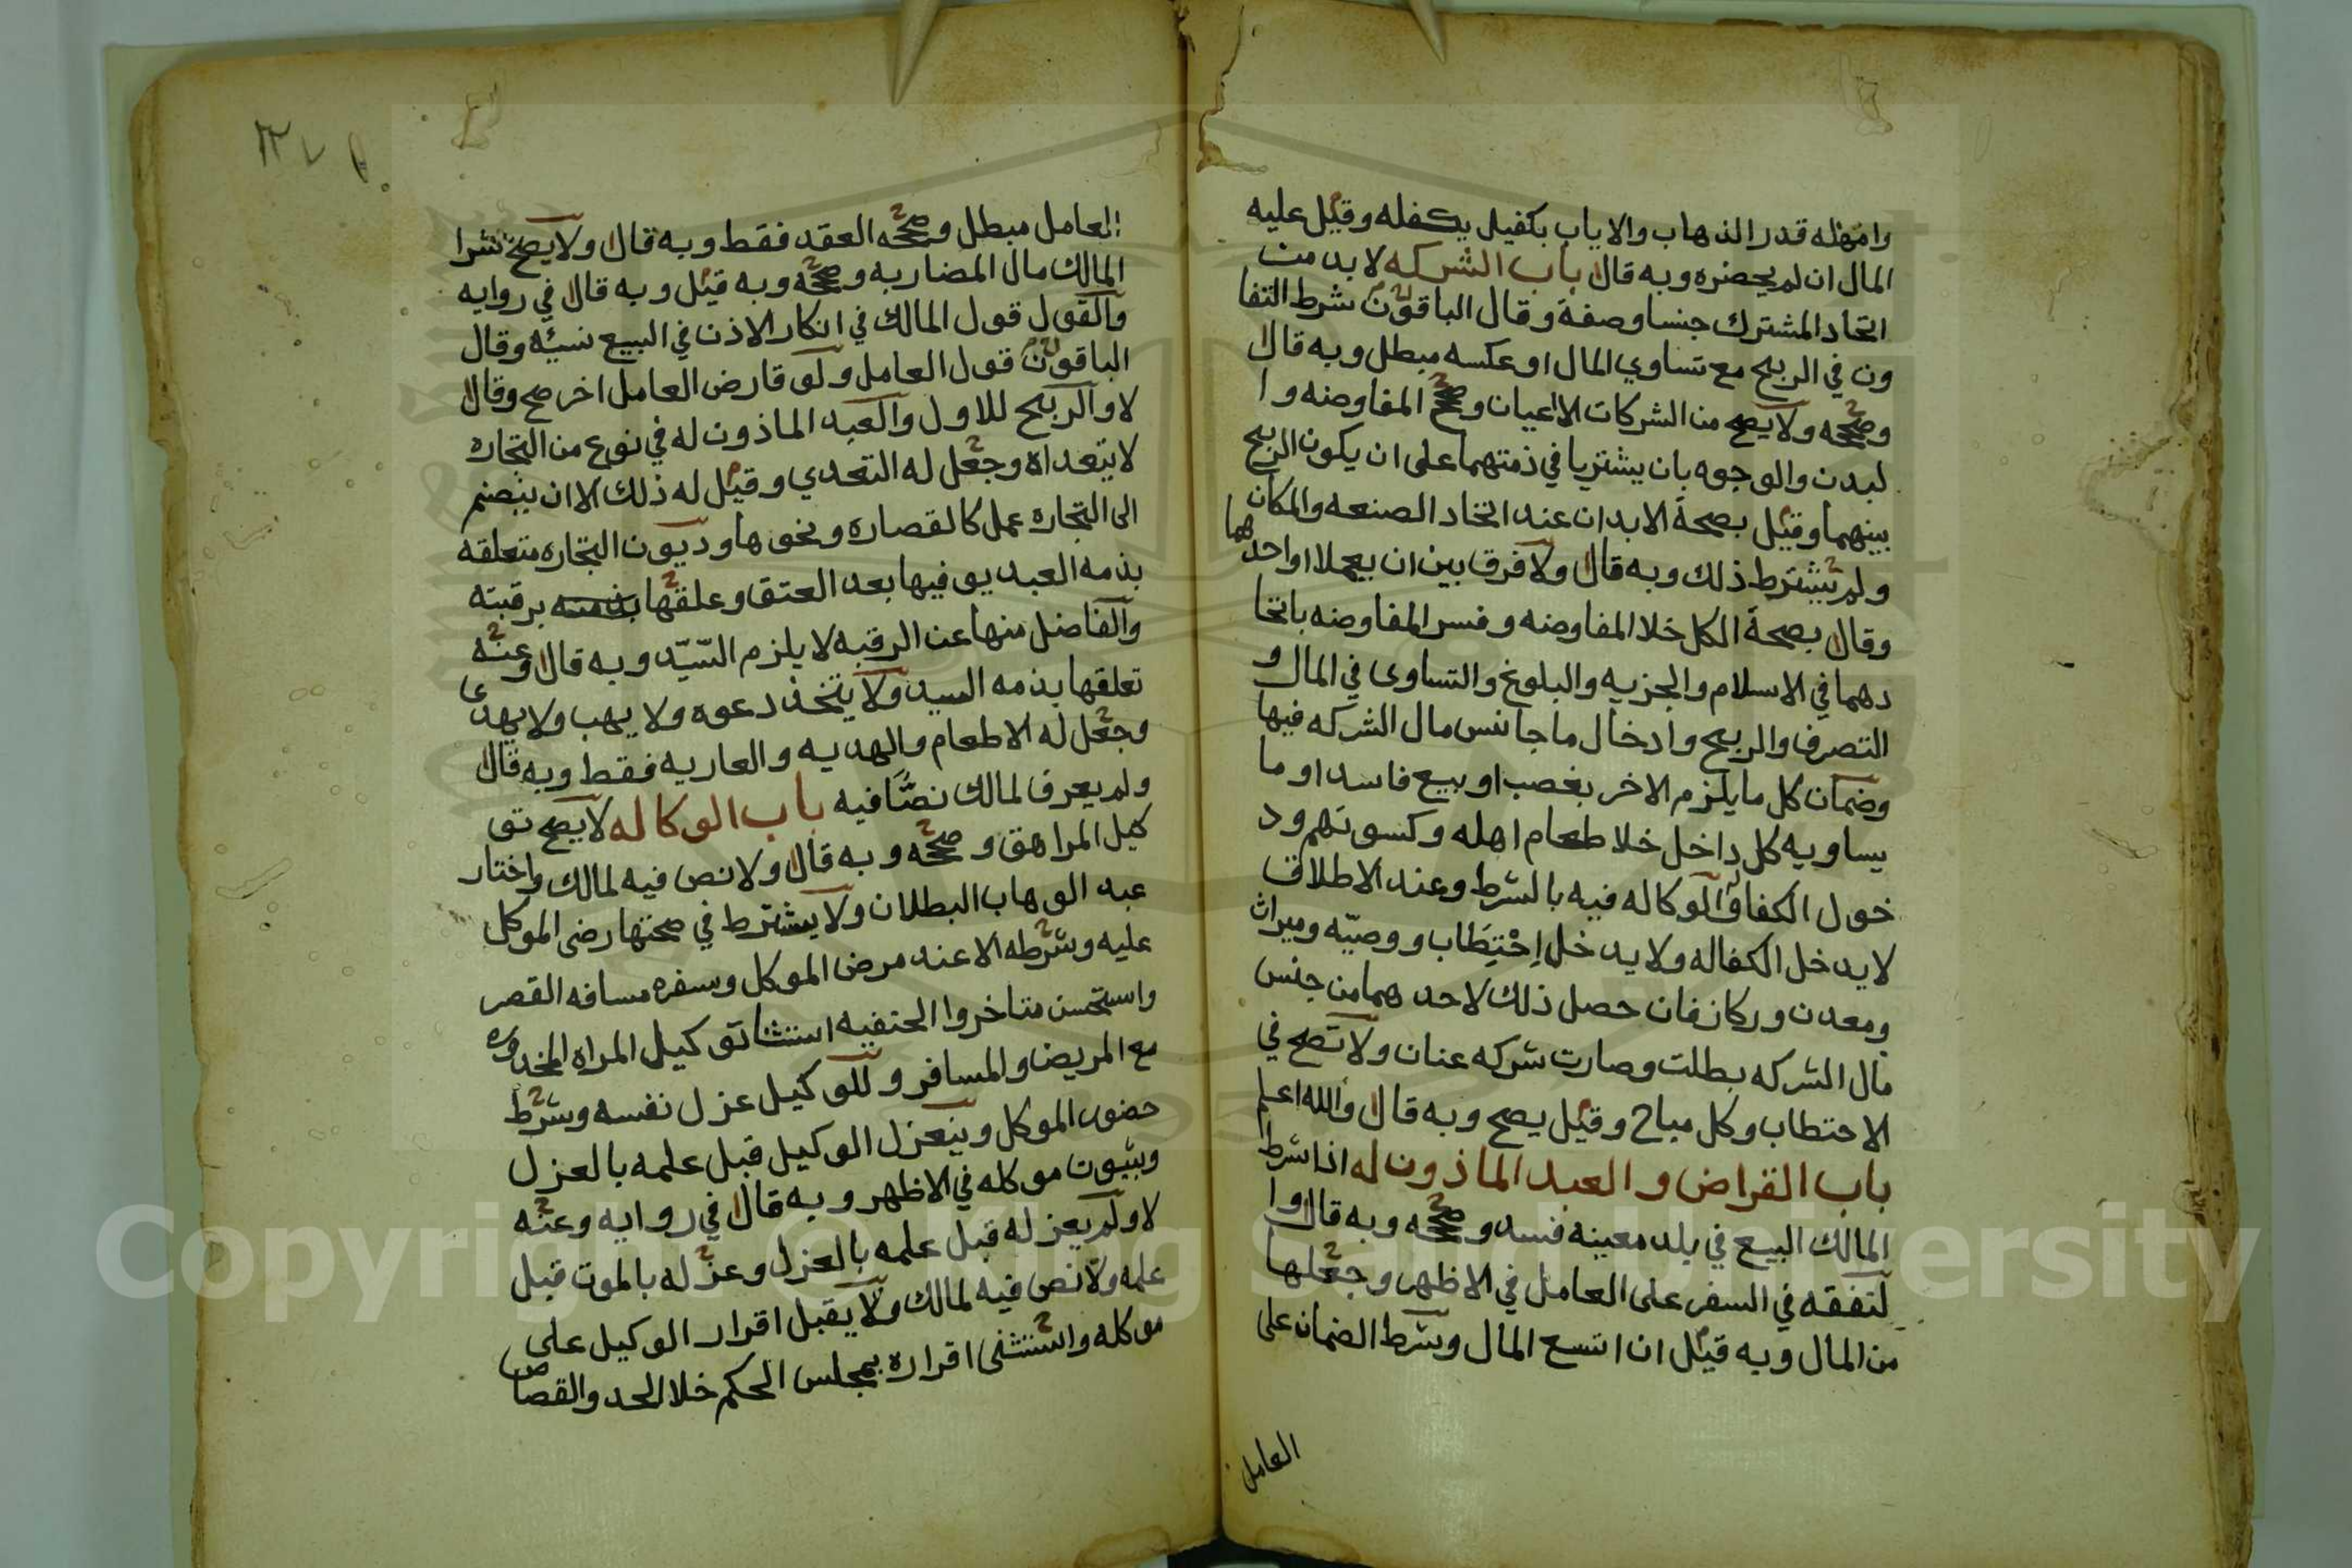 وامهله قدر الذهاب والاياب بكفيل يكفله وقيل عليه
المال ان لم يحضره وبه قال باب الشركه لا بد من
اتحاد المشترك جنسا وصفة وقال الباقون شرط التفا
وت في الربح مع تساوي المال او عكسه مبطل وبه قال
وصححه ولا يصح من الشركات الا العيان وصحح المفاوضه وا
لبدن والوجوه بان يشتريا في ذمتهما على ان يكون الربح
بينهما وقيل بصحة الابدان عند اتحاد الصنعه والمكان
ولم يشترط ذلك وبه قال ولا فرق بين ان يعملا او احدهما
وقال بصحة الكل خلا المفاوضه وفسر المفاوضه باتحا
دهما في الاسلام والجزيه والبلوغ والتساوى في المال و
التصرف والربح وادخال ما جانس مال الشركه فيها
وضمان كل ما يلزم الاخر بغصب او بيع فاسد او ما
يساويه كل داخل خلا طعام اهله وكسوتهم ود
خول الكفاله والوكاله فيه بالشرط وعند الاطلاق
لا يدخل الكفاله ولا يدخل احْتِطَاب ووصيّه وميراث
ومعدن وركاز فان حصل ذلك لاحدهما من جنس
مال الشركه بطلت وصارت شركه عنان ولا تصح في
الاحتطاب وكل مباح وقيل يصح وبه قال والله اعلم
باب القراض والعبد الماذون له اذا شرط
المالك البيع في بلد معينه فسد وصححه وبه قال وا
لنفقه في السفر على العامل في الاظهر وجعلها
من المال وبه قيل ان اتسع المال وشرط الضمان على
العامل
العامل مبطل وصححه العقد فقط وبه قال ولا يصح شرا
المالك مال المضاربه وصححه وبه قيل وبه قال في روايه
والقول قول المالك في انكار الاذن في البيع نسيئه وقال
الباقون قول العامل ولو قارض العامل اخر صح وقال
لا والربح للاول والعبد الماذون له في نوع من التجاره
لا يتعداه وجعل له التعدي وقيل له ذلك الا ان ينضم
الى التجاره عمل كالقصاره ونحوها وديون التجاره متعلقه
بذمه العبد يوفيها بعد العتق وعلقها بذمته برقبته
والفاضل منها عن الرقبه لا يلزم السّيّد وبه قال وعنه
تعلقها بذمه السيد ولا يتخذ دعوه ولا يهب ولا يهدى
وجعل له الاطعام والهديه والعاريه فقط وبه قال
ولم يعرف لمالك نصَّا فيه باب الوكاله لا يصح تو
كيل المراهق وصححه وبه قال ولا نص فيه لمالك واختار
عبد الوهاب البطلان ولا يشترط في صحتها رضى الموكل
عليه وشرطه الا عند مرض الموكل وسفره مسافه القصر
واستحسن متاخروا الحنفيه استثنا توكيل المراه المخدوره
مع المريض والمسافر وللوكيل عزل نفسه وشرط
حضور الموكل وينعزل الوكيل قبل علمه بالعزل
وبموت موكله في الاظهر وبه قال في روايه وعنه
لا ولم يعزله قبل علمه بالعزل وعزله بالموت قبل
علمه ولا نص فيه لمالك ولا يقبل اقرار الوكيل على
موكله واستثنى اقراره بمجلس الحكم خلا الحد والقصاص
Copyright © King Saud University